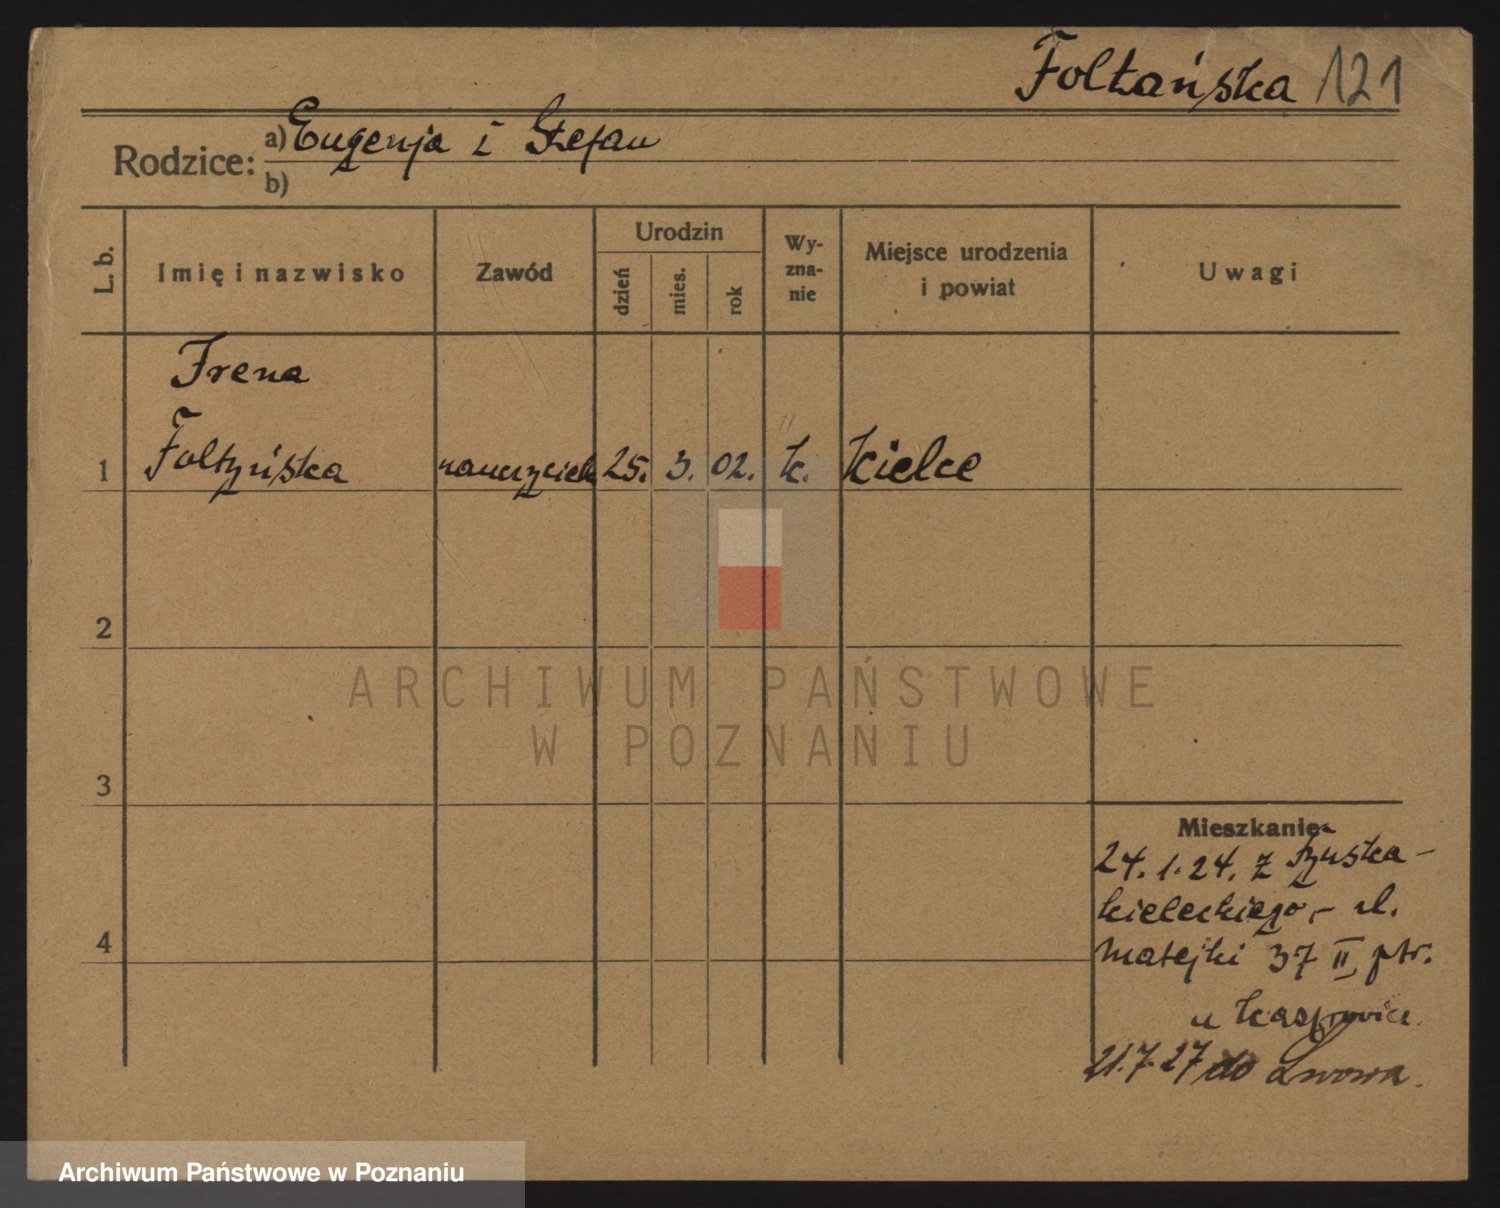 Foltańska 121
Rodzice: a) Eugenja i Stefan
b)
L. b.
Imię i nazwisko
Zawód
Urodzin
dzień
mies.
rok
Wy-
zna-
nie
Miejsce urodzenia
i powiat
Uwagi
Irena
1 Foltyńska nauczyciel 25. 3. 02. k. Kielce
2
3
4
ARCHIWUM PAŃSTWOWE
W POZNANIU
Mieszkanie
24.1.24. z
kieleckiego, - ul.
Matejki 37 II ptr.
u
21.7.27 do Lwowa.
Archiwum Państwowe w Poznaniu